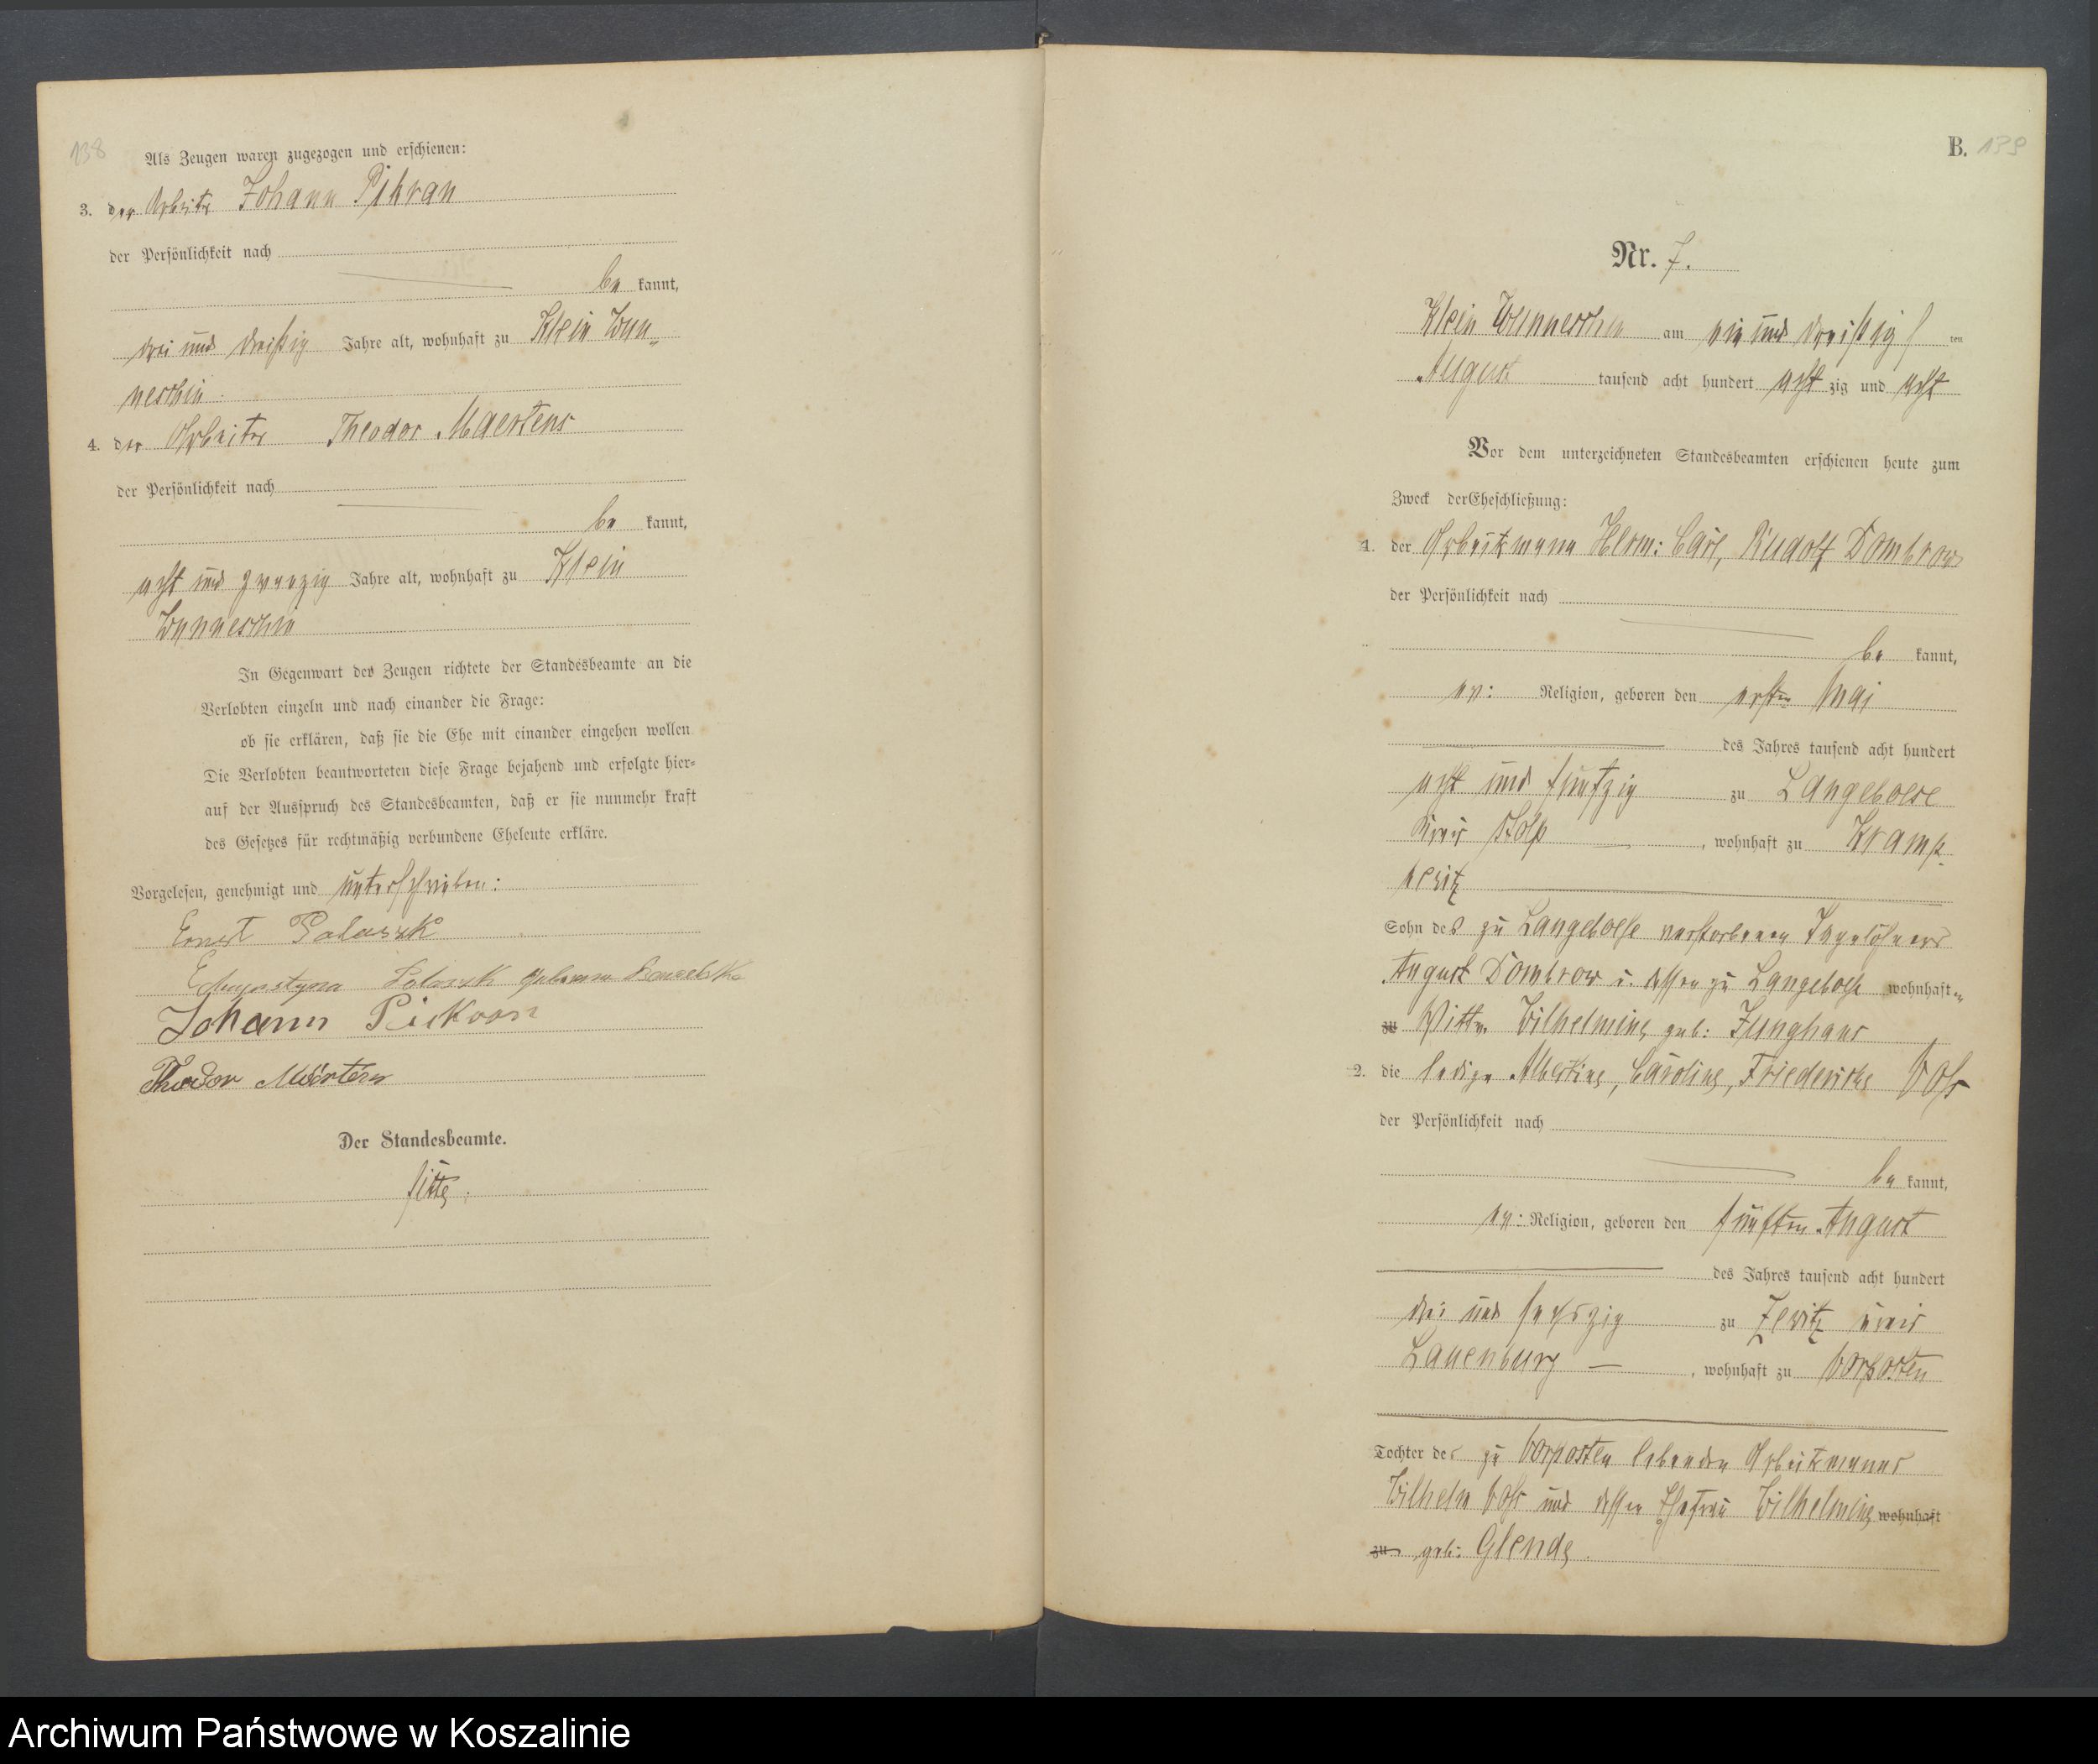 138
Als Zeugen waren zugezogen und erschienen:
3. der Arbeiter Johann Pikran
der Persönlichkeit nach
be kannt,
drei und dreißig Jahre alt, wohnhaft zu Klein Wun-
neschin
4. der Arbeiter Theodor Maertens
der Persönlichkeit nach
be kannt,
acht und zwanzig Jahre alt, wohnhaft zu Klein
Wunneschin
In Gegenwart der Zeugen richtete der Standesbeamte an die
Verlobten einzeln und nach einander die Frage:
ob sie erklären, daß sie die Ehe mit einander eingehen wollen
Die Verlobten beantworteten diese Frage bejahend und erfolgte hier-
auf der Ausspruch des Standesbeamten, daß er sie nunmehr kraft
des Gesetzes für rechtmäßig verbundene Eheleute erkläre.
Vorgelesen, genehmigt und unterschrieben:
Ernst Polaszk
Polaszk geborene
Johann
Theodor Märtens
Der Standesbeamte.
B. 139
Nr. 7.
Klein Wunneschin am ein und dreißig ten
August tausend acht hundert acht zig und acht
Vor dem unterzeichneten Standesbeamten erschienen heute zum
Zweck der Eheschließung:
1. der Arbeitsmann Herm: Carl, Rudolf Dombrow
der Persönlichkeit nach
be kannt,
ev: Religion, geboren den ersten Mai
des Jahres tausend acht hundert
acht und fünfzig zu Langeboese
Kreis Stolp, wohnhaft zu Kramp-
kewitz
Sohn des zu Langeboese verstorbenen Tagelöhners
August Dombrow u. dessen zu Langeboese wohnhaften
zu Wittwe Wilhelmine geb: Junghans
2. die ledige Albertine, Caroline, Friedericke Voß
der Persönlichkeit nach
be kannt,
ev: Religion, geboren den fünften August
des Jahres tausend acht hundert
drei und sechszig zu Zewitz Kreis
Lauenburg —, wohnhaft zu Vorposten
Tochter des zu Vorposten lebenden Arbeitsmanns
Wilhelm Voß und dessen Ehefrau Wilhelmine wohnhaft
zu geb: Glende.
Archiwum Państwowe w Koszalinie